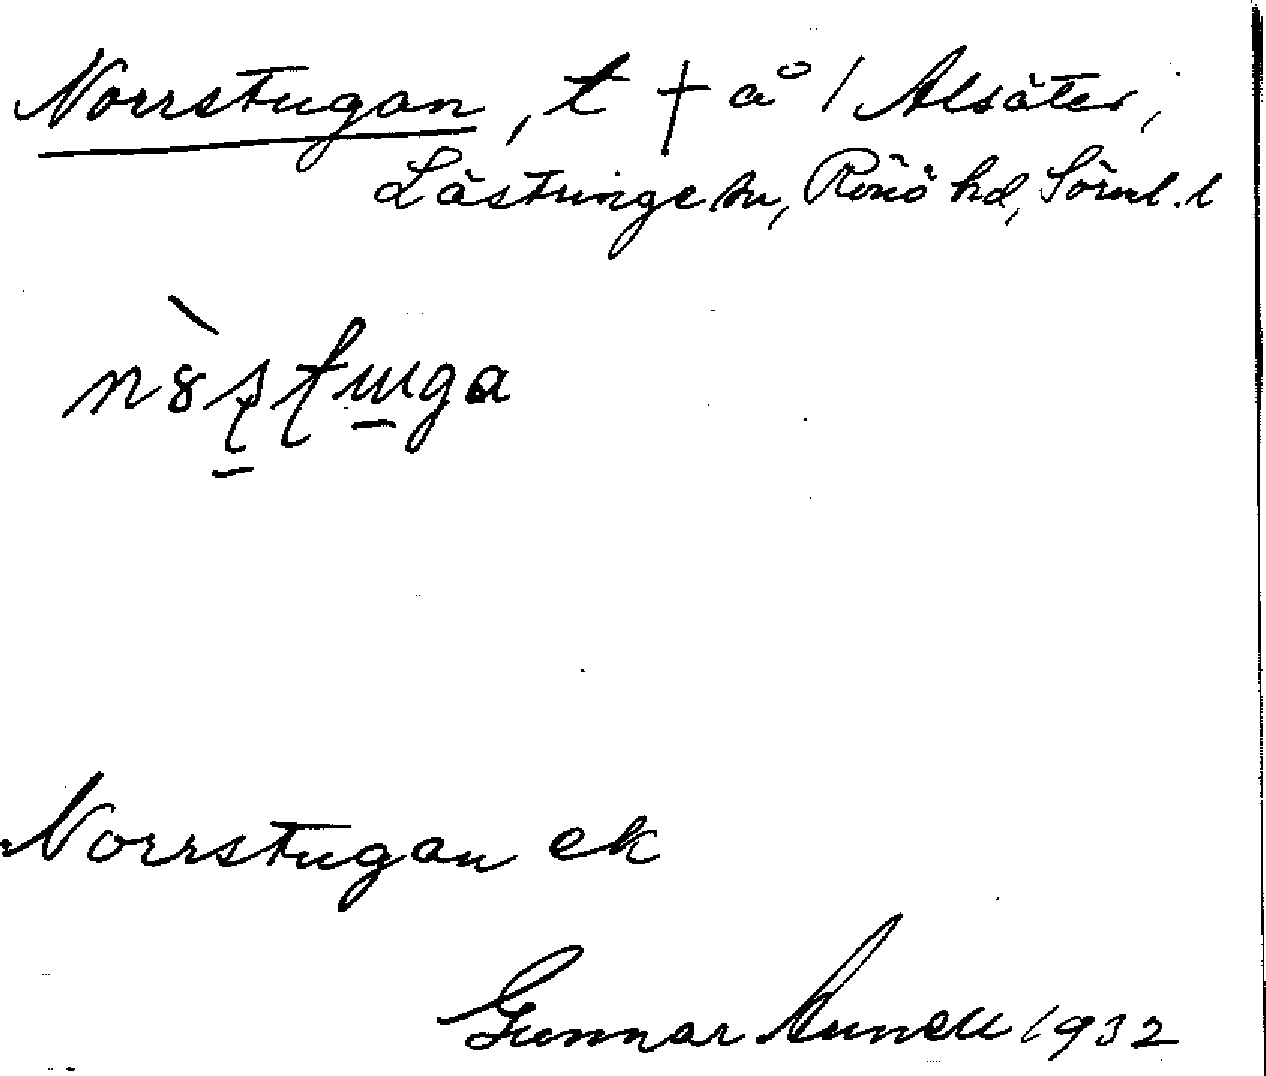 Norrstugan, t † å / Alsäter,
Lästringe sn, Rönö hd, Söml. l
Norrstugan ek
Gunnar 1932